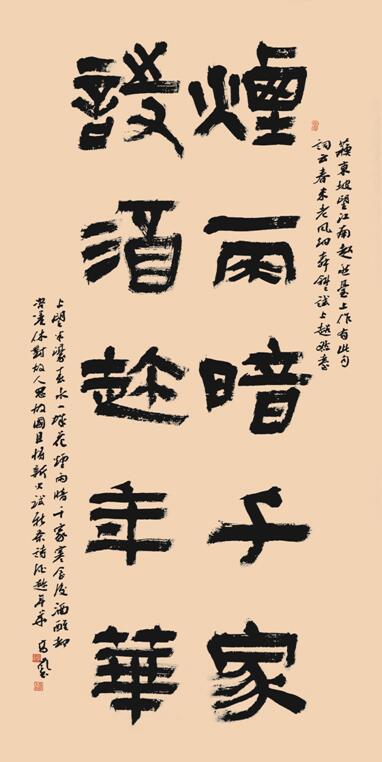 蘇東坡望江南超然臺上作有此句
詞云春未老風細柳斜斜試上超然臺
煙雨暗千家
詩酒趁年華
上望半濠春水一城花煙雨暗千家寒食後酒醒卻
咨嗟休對故人思故國且將新火試新茶詩酒趁年華